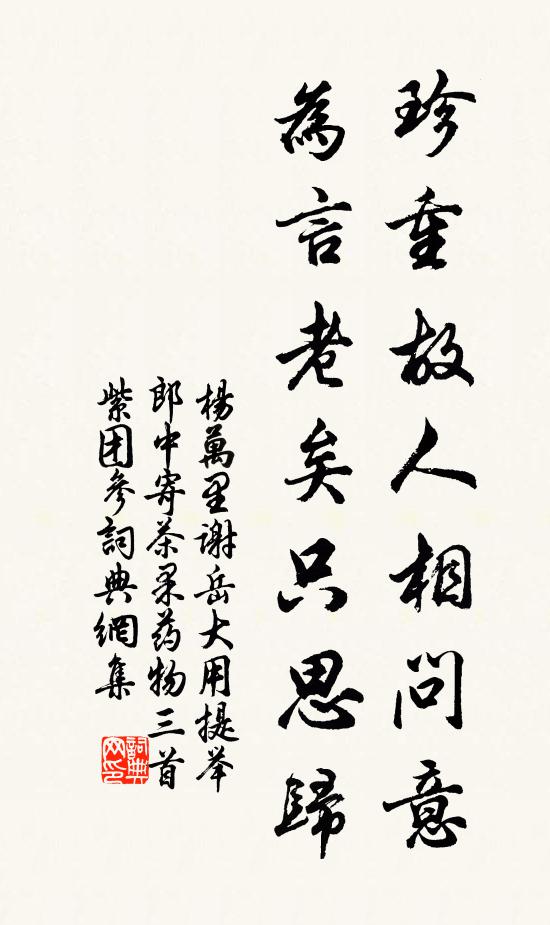 珍重故人相問意
為言老矣只思歸
楊萬里謝岳大用提举
郎中寄茶果药物三首
紫团参詞典網集
詞典
网印